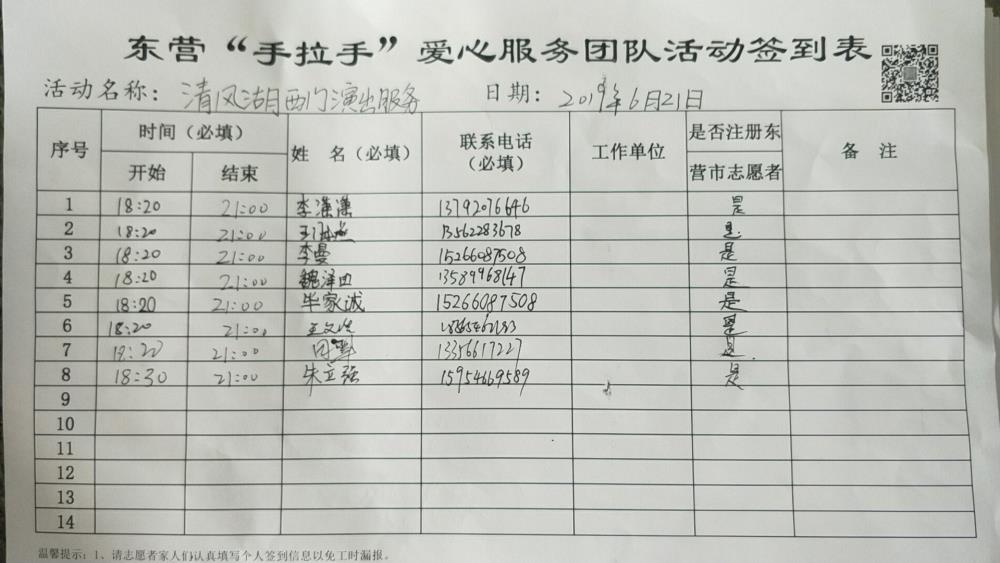 东营“手拉手”爱心服务团队活动签到表
活动名称：清风湖西门演出服务 日期：2019年6月21日
序号 时间（必填） 姓 名（必填） 联系电话（必填） 工作单位 是否注册东营市志愿者 备 注
开始 结束
1 18:20 21:00 李潇潇 13792076646 是
2 18:20 21:00 13562283678 是
3 18:20 21:00 李曼 15266087508 是
4 18:20 21:00 魏泽田 13589968147 是
5 18:20 21:00 毕家诚 15266087508 是
6 18:20 21:00 是
7 21:00 13356617227 是
8 18:30 21:00 朱立强 15954669589 是
9
10
11
12
13
14
温馨提示：1、请志愿者家人们认真填写个人签到信息以免工时漏报。